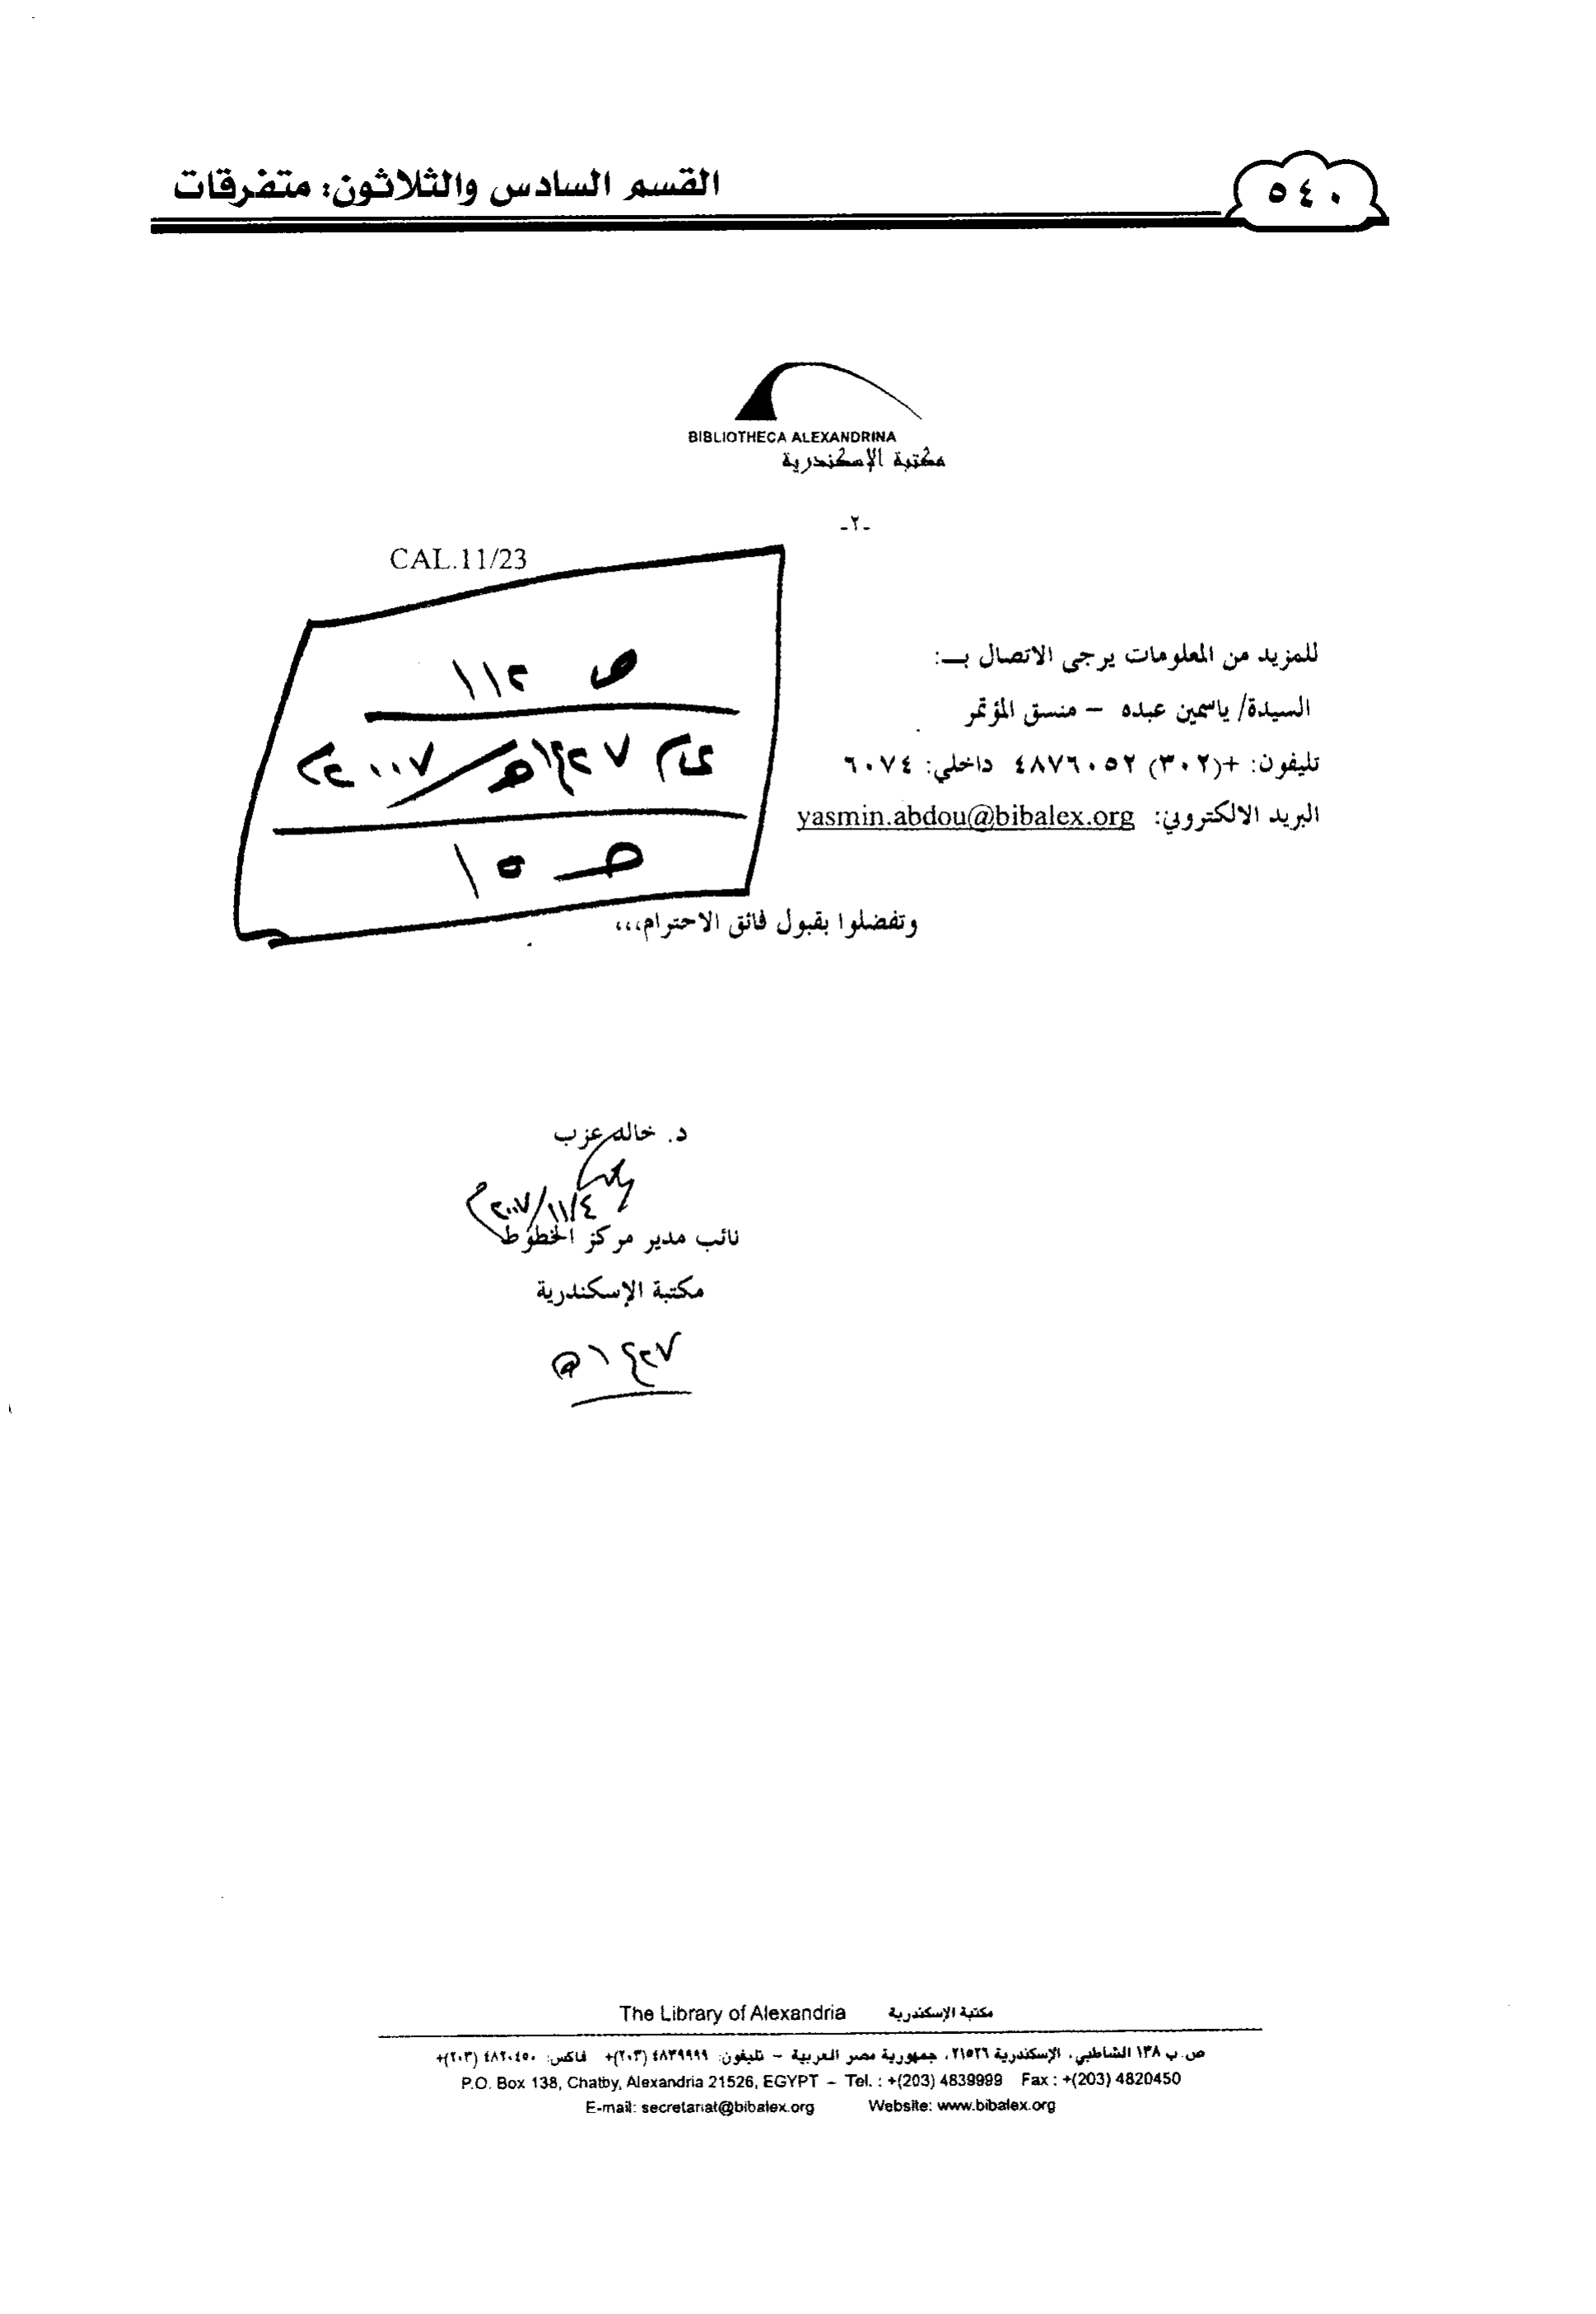 ٥٤٠
القسم السادس والثلاثون: متفرقات
BIBLIOTHECA ALEXANDRINA
مكتبة الإسكندرية
-٢-
CAL.11/23
ص ١١٢
عام ١٤٢٧هـ/٢٠٠٧م
صـ ٥١
للمزيد من المعلومات يرجى الاتصال بـ:
السيدة/ ياسمين عبده – منسق المؤتمر
تليفون: +(٣٠٢) ٤٨٧٦٠٥٢ داخلي: ٦٠٧٤
البريد الالكتروني: yasmin.abdou@bibalex.org
وتفضلوا بقبول فائق الاحترام،،،
د. خالد عزب
٢٠٠٧/١١/٤م
نائب مدير مركز الخطوط
مكتبة الإسكندرية
١٤٢٧هـ
The Library of Alexandria مكتبة الإسكندرية
ص.ب ١٣٨ الشاطبي، الإسكندرية ٢١٥٢٦، جمهورية مصر العربية – تليفون: ٤٨٣٩٩٩٩ (٢٠٣)+ فاكس: ٤٨٢٠٤٥٠ (٢٠٣)+
P.O. Box 138, Chatby, Alexandria 21526, EGYPT – Tel. : +(203) 4839999 Fax : +(203) 4820450
E-mail: secretariat@bibalex.org Website: www.bibalex.org